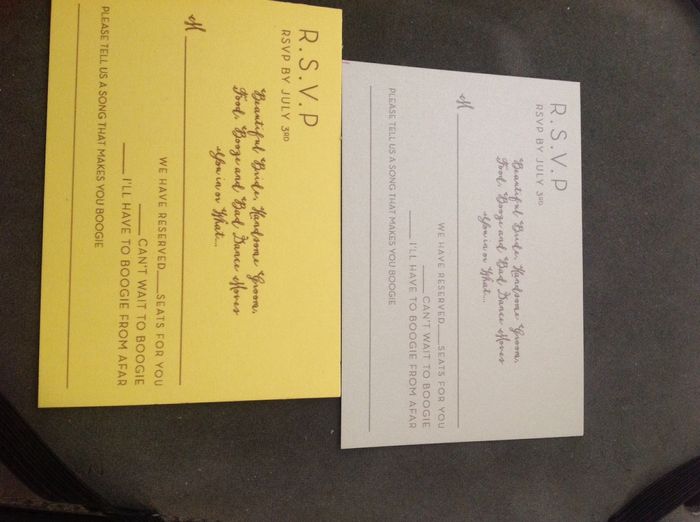 R.S.V.P
RSVP BY JULY 3RD
Beautiful Bride, Handsome Groom,
Food, Booze and Bad Dance Moves
You in or What...
M
WE HAVE RESERVED___SEATS FOR YOU
____CAN'T WAIT TO BOOGIE
____I'LL HAVE TO BOOGIE FROM AFAR
PLEASE TELL US A SONG THAT MAKES YOU BOOGIE
R.S.V.P
RSVP BY JULY 3RD
Beautiful Bride, Handsome Groom,
Food, Booze and Bad Dance Moves
You in or What...
M
WE HAVE RESERVED___SEATS FOR YOU
____CAN'T WAIT TO BOOGIE
____I'LL HAVE TO BOOGIE FROM AFAR
PLEASE TELL US A SONG THAT MAKES YOU BOOGIE